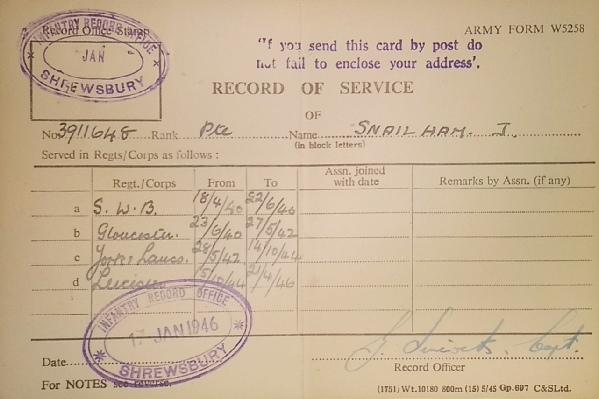 ARMY FORM W5258
Record Office Stamp
INFANTRY RECORD OFFICE
JAN
SHREWSBURY
"If you send this card by post do
not fail to enclose your address'.
RECORD OF SERVICE
OF
No. 3911648 Rank Pte Name SNAILHAM. J.
(in block letters)
Served in Regts/Corps as follows :
Regt./Corps From To Assn. joined with date Remarks by Assn. (if any)
a S.W.B. 18/4/40 22/6/40
b Gloucester. 23/6/40 27/5/42
c York & Lancs. 28/5/42 14/10/44
d Leicester 15/10/44 21/4/46
INFANTRY RECORD OFFICE
17 JAN 1946
SHREWSBURY
Date
Capt.
Record Officer
For NOTES see reverse.
(1751) Wt.10180 800m (15) 5/45 Gp.697 C&SLtd.